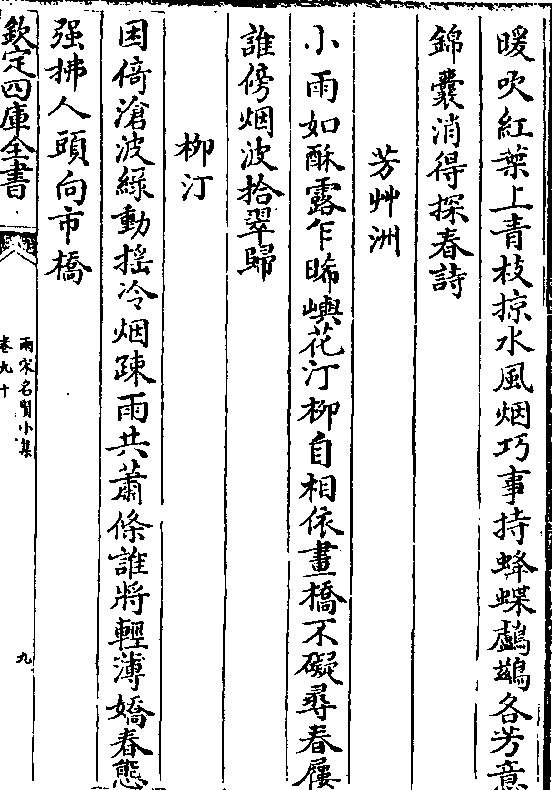 暖吹紅葉上青枝掠水風烟巧事持蜂蝶鸕鷀各芳意
錦囊消得探春詩
芳艸洲
小雨如酥露乍晞嶼花汀柳自相依畫橋不礙尋春屐
誰傍烟波拾翠歸
柳汀
困倚滄波綠動摇冷烟疎雨共蕭條誰將輕薄嬌春態
强拂人頭向市橋
欽定四庫全書
兩宋名賢小集
卷九十
九